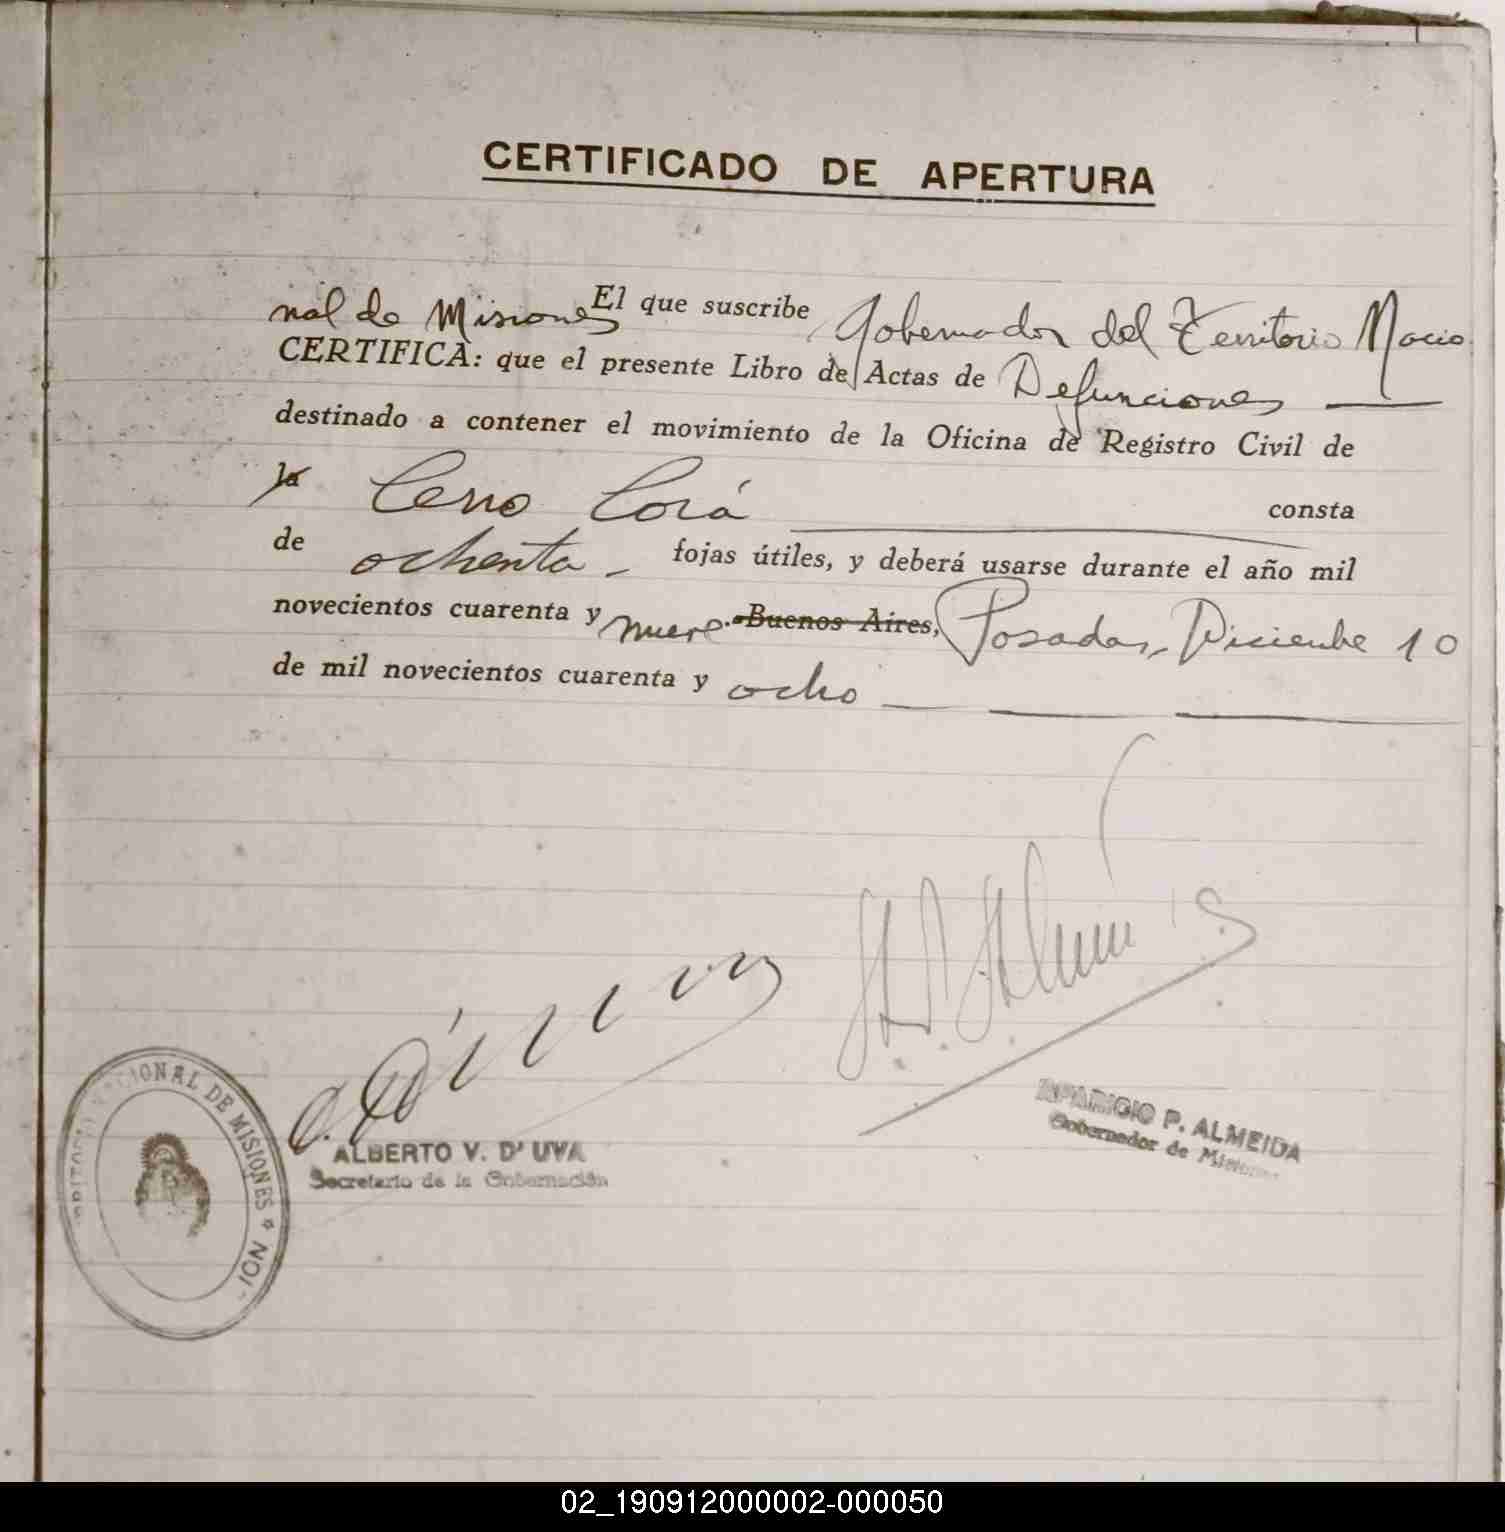 CERTIFICADO DE APERTURA
El que suscribe Gobernador del Territorio Nacio
nal de Misiones
CERTIFICA: que el presente Libro de Actas de Defunciones
destinado a contener el movimiento de la Oficina de Registro Civil de
la Cerro Corá consta
de ochenta fojas útiles, y deberá usarse durante el año mil
novecientos cuarenta y nueve. Buenos Aires, Posadas, Diciembre 10
de mil novecientos cuarenta y ocho
ALBERTO V. D'UVA
Secretario de la Gobernación
APARICIO P. ALMEIDA
Gobernador de Misiones
NACIONAL DE MISIONES
02_190912000002-000050